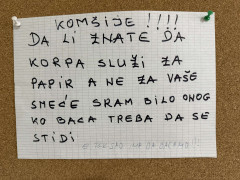 KOMŠIJE !!!!
DA LI ZNATE DA
KORPA SLUŽI ZA
PAPIR A NE ZA VAŠE
SMEĆE SRAM BILO ONOG
KO BACA TREBA DA SE
STIDI